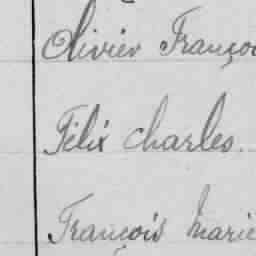 Olivier Franço
Félix Charles.
François Marie